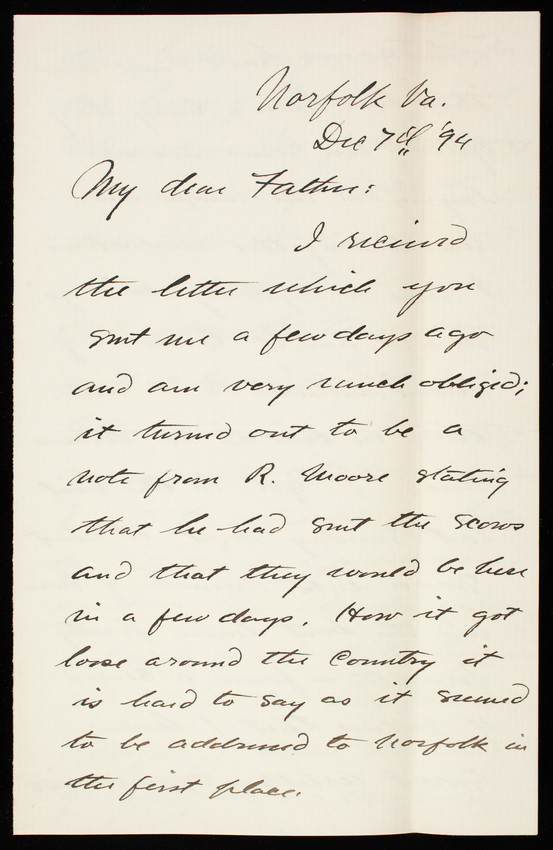 Norfolk Va.
Dec 7th '94
My dear Father:
I received
the letter which you
sent me a few days ago
and am very much obliged;
it turned out to be a
note from R. Moore stating
that he had sent the scows
and that they would be here
in a few days. How it got
loose around the country it
is hard to say as it seemed
to be addressed to Norfolk in
the first place.